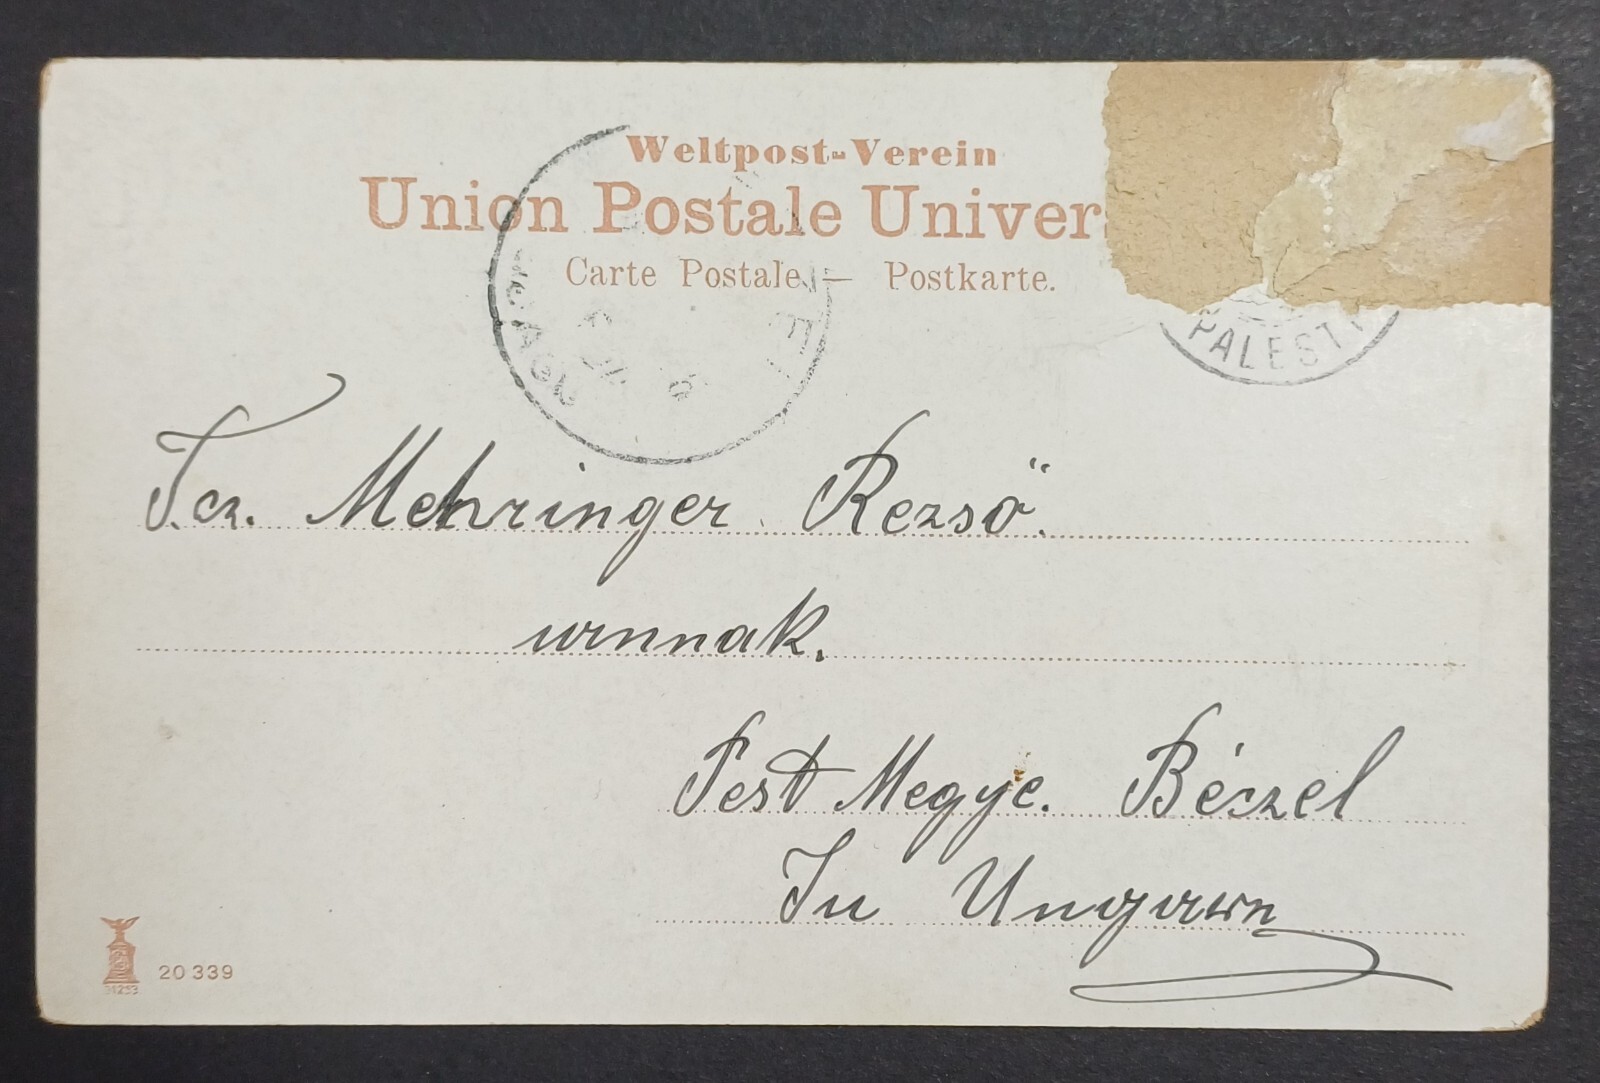 Weltpost-Verein
Union Postale Univer
Carte Postale — Postkarte.
PALEST
T.cz. Mehringer Rezső
urnnak.
Pest Megye. Béczel
In Ungarn
20 339